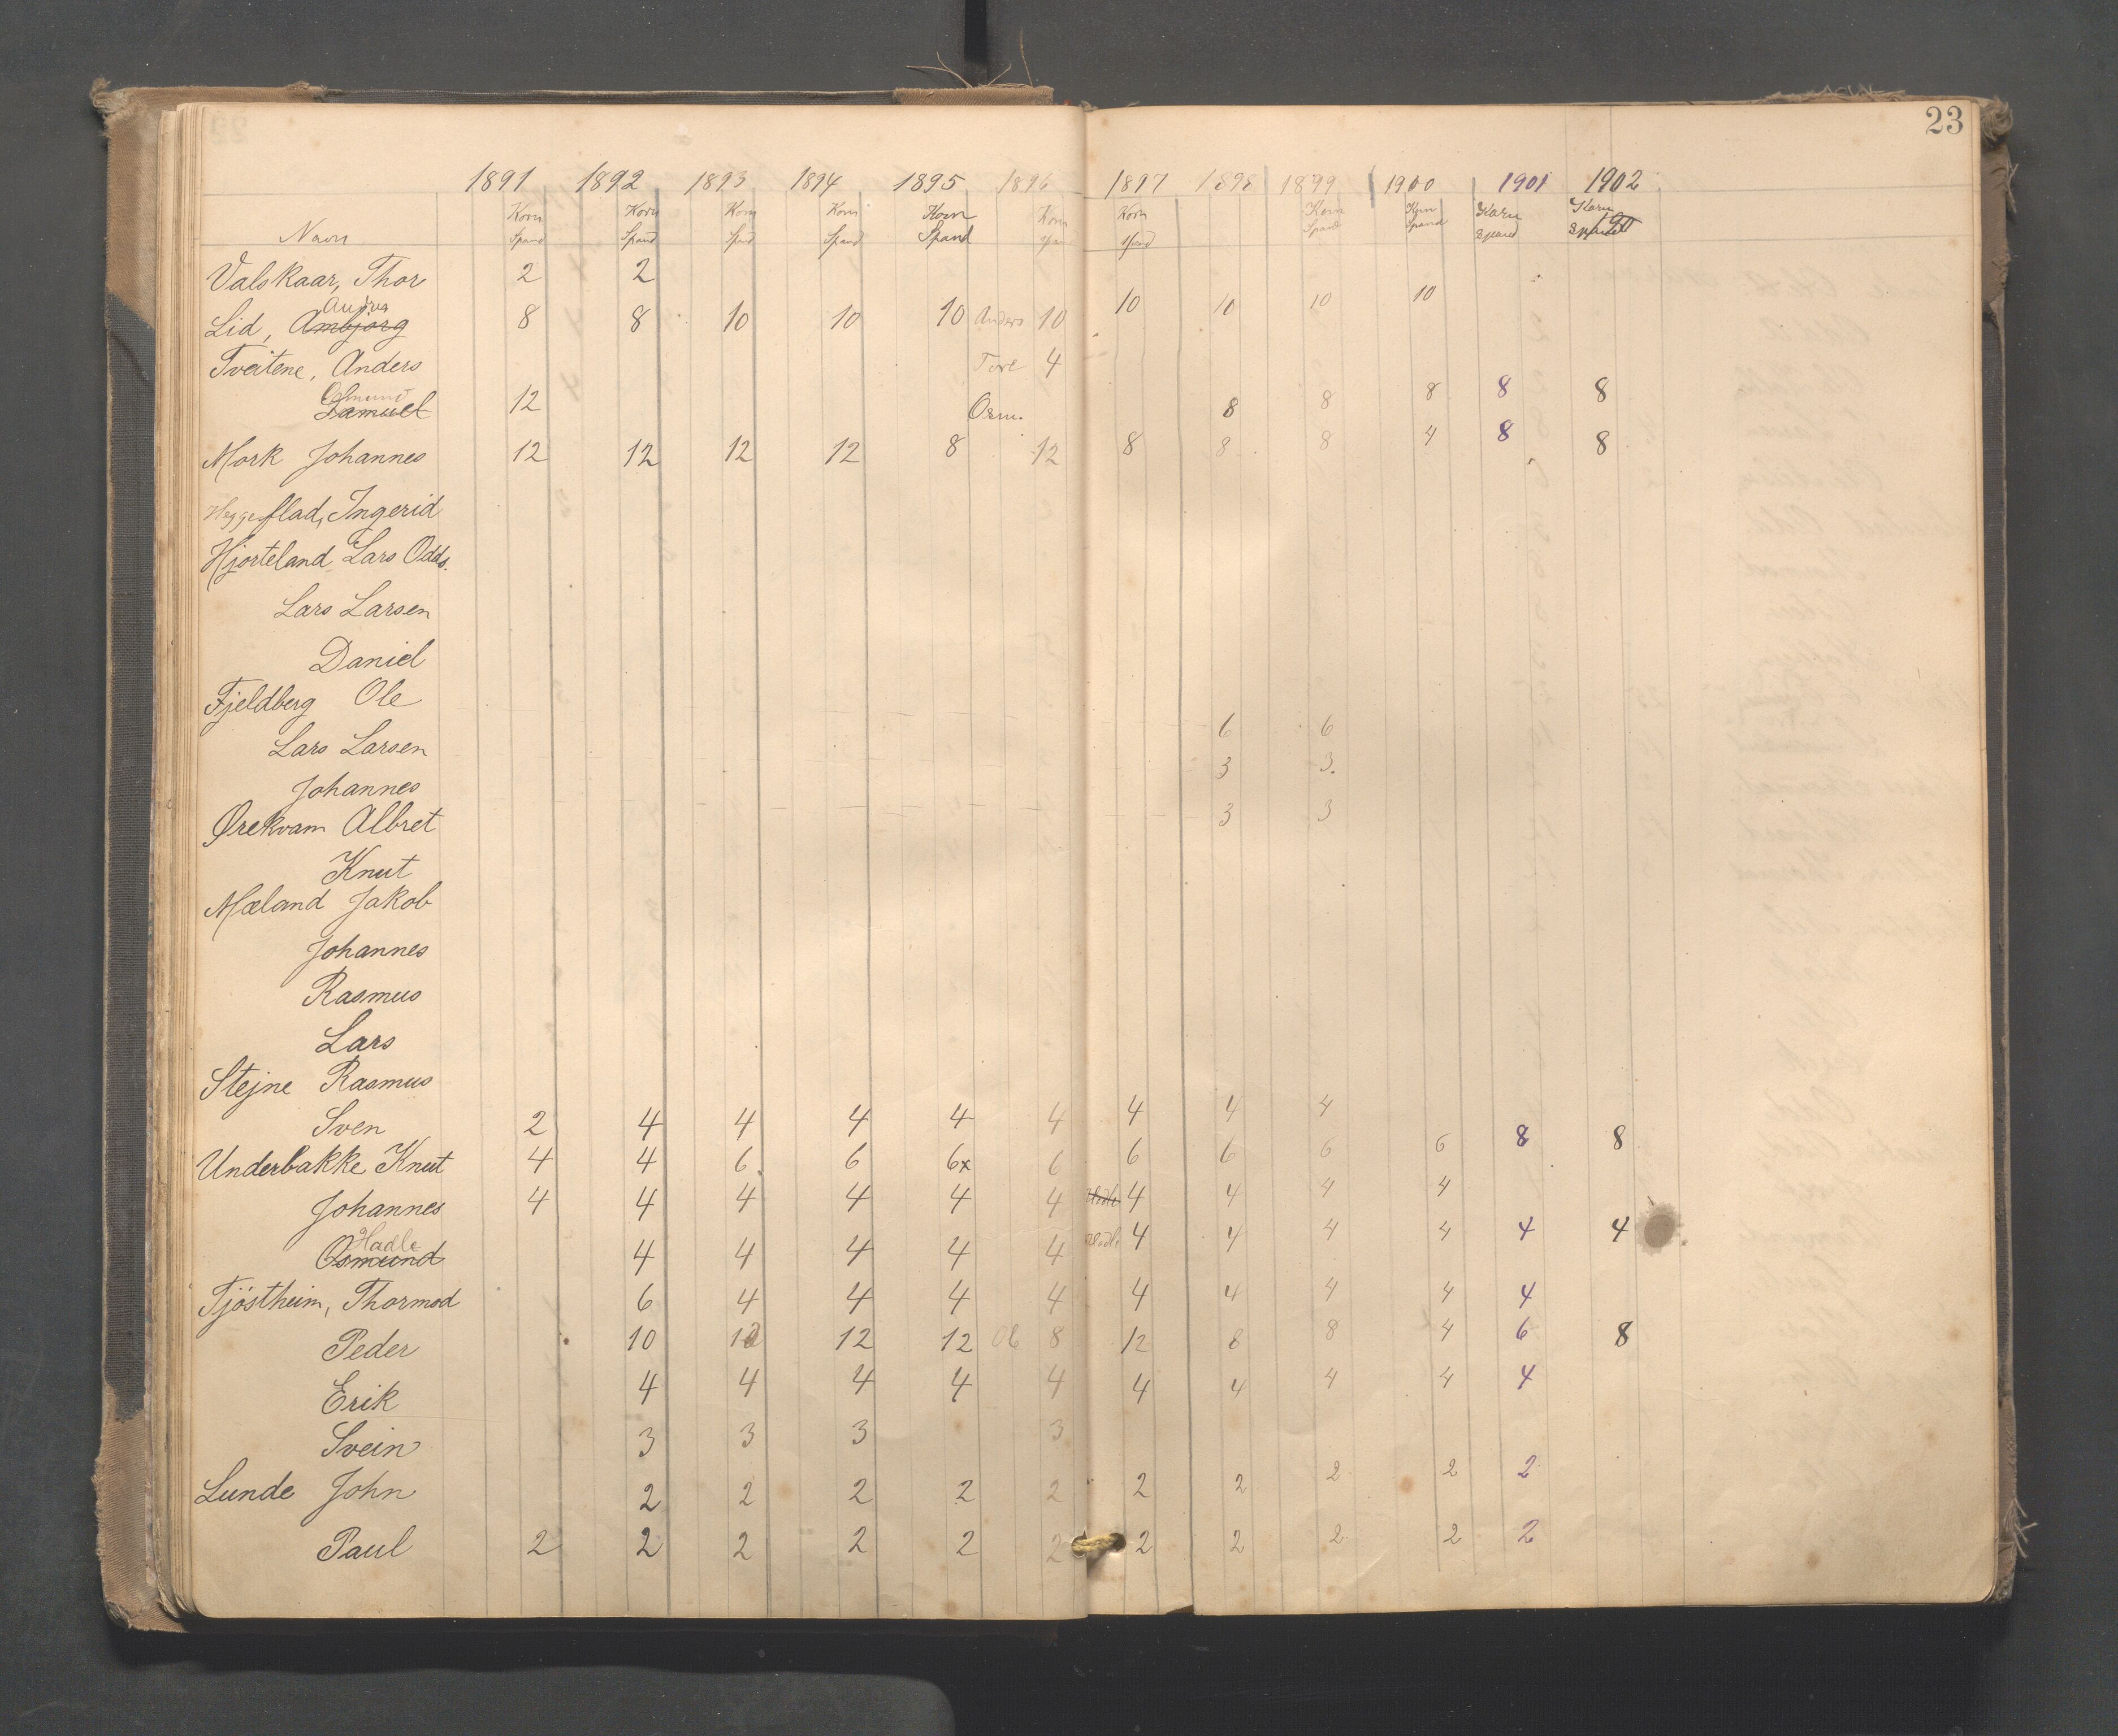 23
1891 1892 1893 1894 1895 1896 1897 1898 1899 1900 1901 1902
Navn Korn Spand Korn Spand Korn Spand Korn Spand Korn Spand Korn Spand Korn Spand Korn Spand Korn Spand Korn Spand Korn Spand
Valskaar, Thor 2 2
Lid, Ambjorg 8 8 10 10 10 Anders 10 10 10 10 10
Tveitene, Anders Tore 4
Osmund
Samuel 12 Osm. 8 8 8 8 8
Mork Johannes 12 12 12 12 8 12 8 8 8 4 8 8
Heggeflad, Ingerid
Hjorteland Lars Odds.
Lars Larsen
Daniel
Fjeldberg Ole 6 6
Lars Larsen 3 3.
Johannes 3 3
Ørekvam Albret
Knut
Mæland Jakob
Johannes
Rasmus
Lars
Stejne Rasmus
Sven 2 4 4 4 4 4 4 4 4
Underbakke Knut 4 4 6 6 6x 6 6 6 6 6 8 8
Johannes 4 4 4 4 4 4 4 4 4 4
Hadle
Osmund 4 4 4 4 4 Hadle 4 4 4 4 4 4
Tjöstheim, Thormod 6 4 4 4 4 4 4 4 4 4
Peder 10 12 12 12 Ole 8 12 8 8 4 6 8
Erik 4 4 4 4 4 4 4 4 4 4
Svein 3 3 3 3
Lunde John 2 2 2 2 2 2 2 2 2 2
Paul 2 2 2 2 2 2 2 2 2 2 2